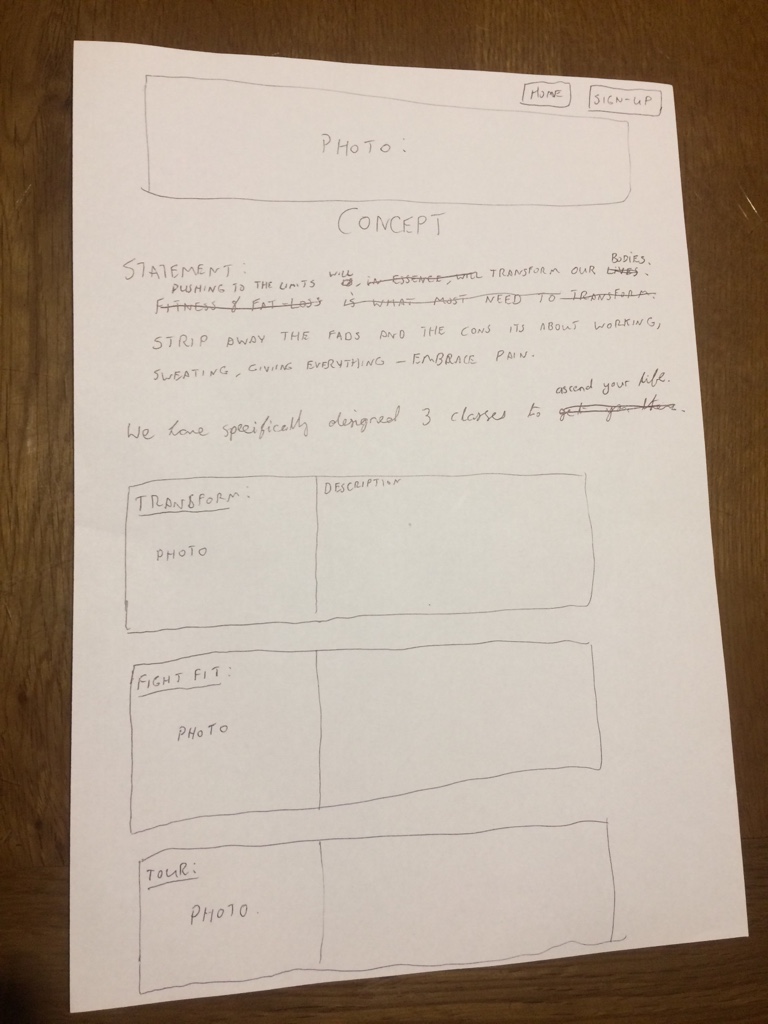 HOME
SIGN-UP
PHOTO:
CONCEPT
STATEMENT:
WILL
BODIES.
PUSHING TO THE LIMITS , IN ESSENCE, WILL TRANSFORM OUR LIVES.
FITNESS & FAT-LOSS IS WHAT MOST NEED TO TRANSFORM.
STRIP AWAY THE FADS AND THE CONS ITS ABOUT WORKING,
SWEATING, GIVING EVERYTHING – EMBRACE PAIN.
ascend your life.
We have specifically designed 3 classes to get you there.
TRANSFORM:
DESCRIPTION
PHOTO
FIGHT FIT:
PHOTO
TOUR:
PHOTO.